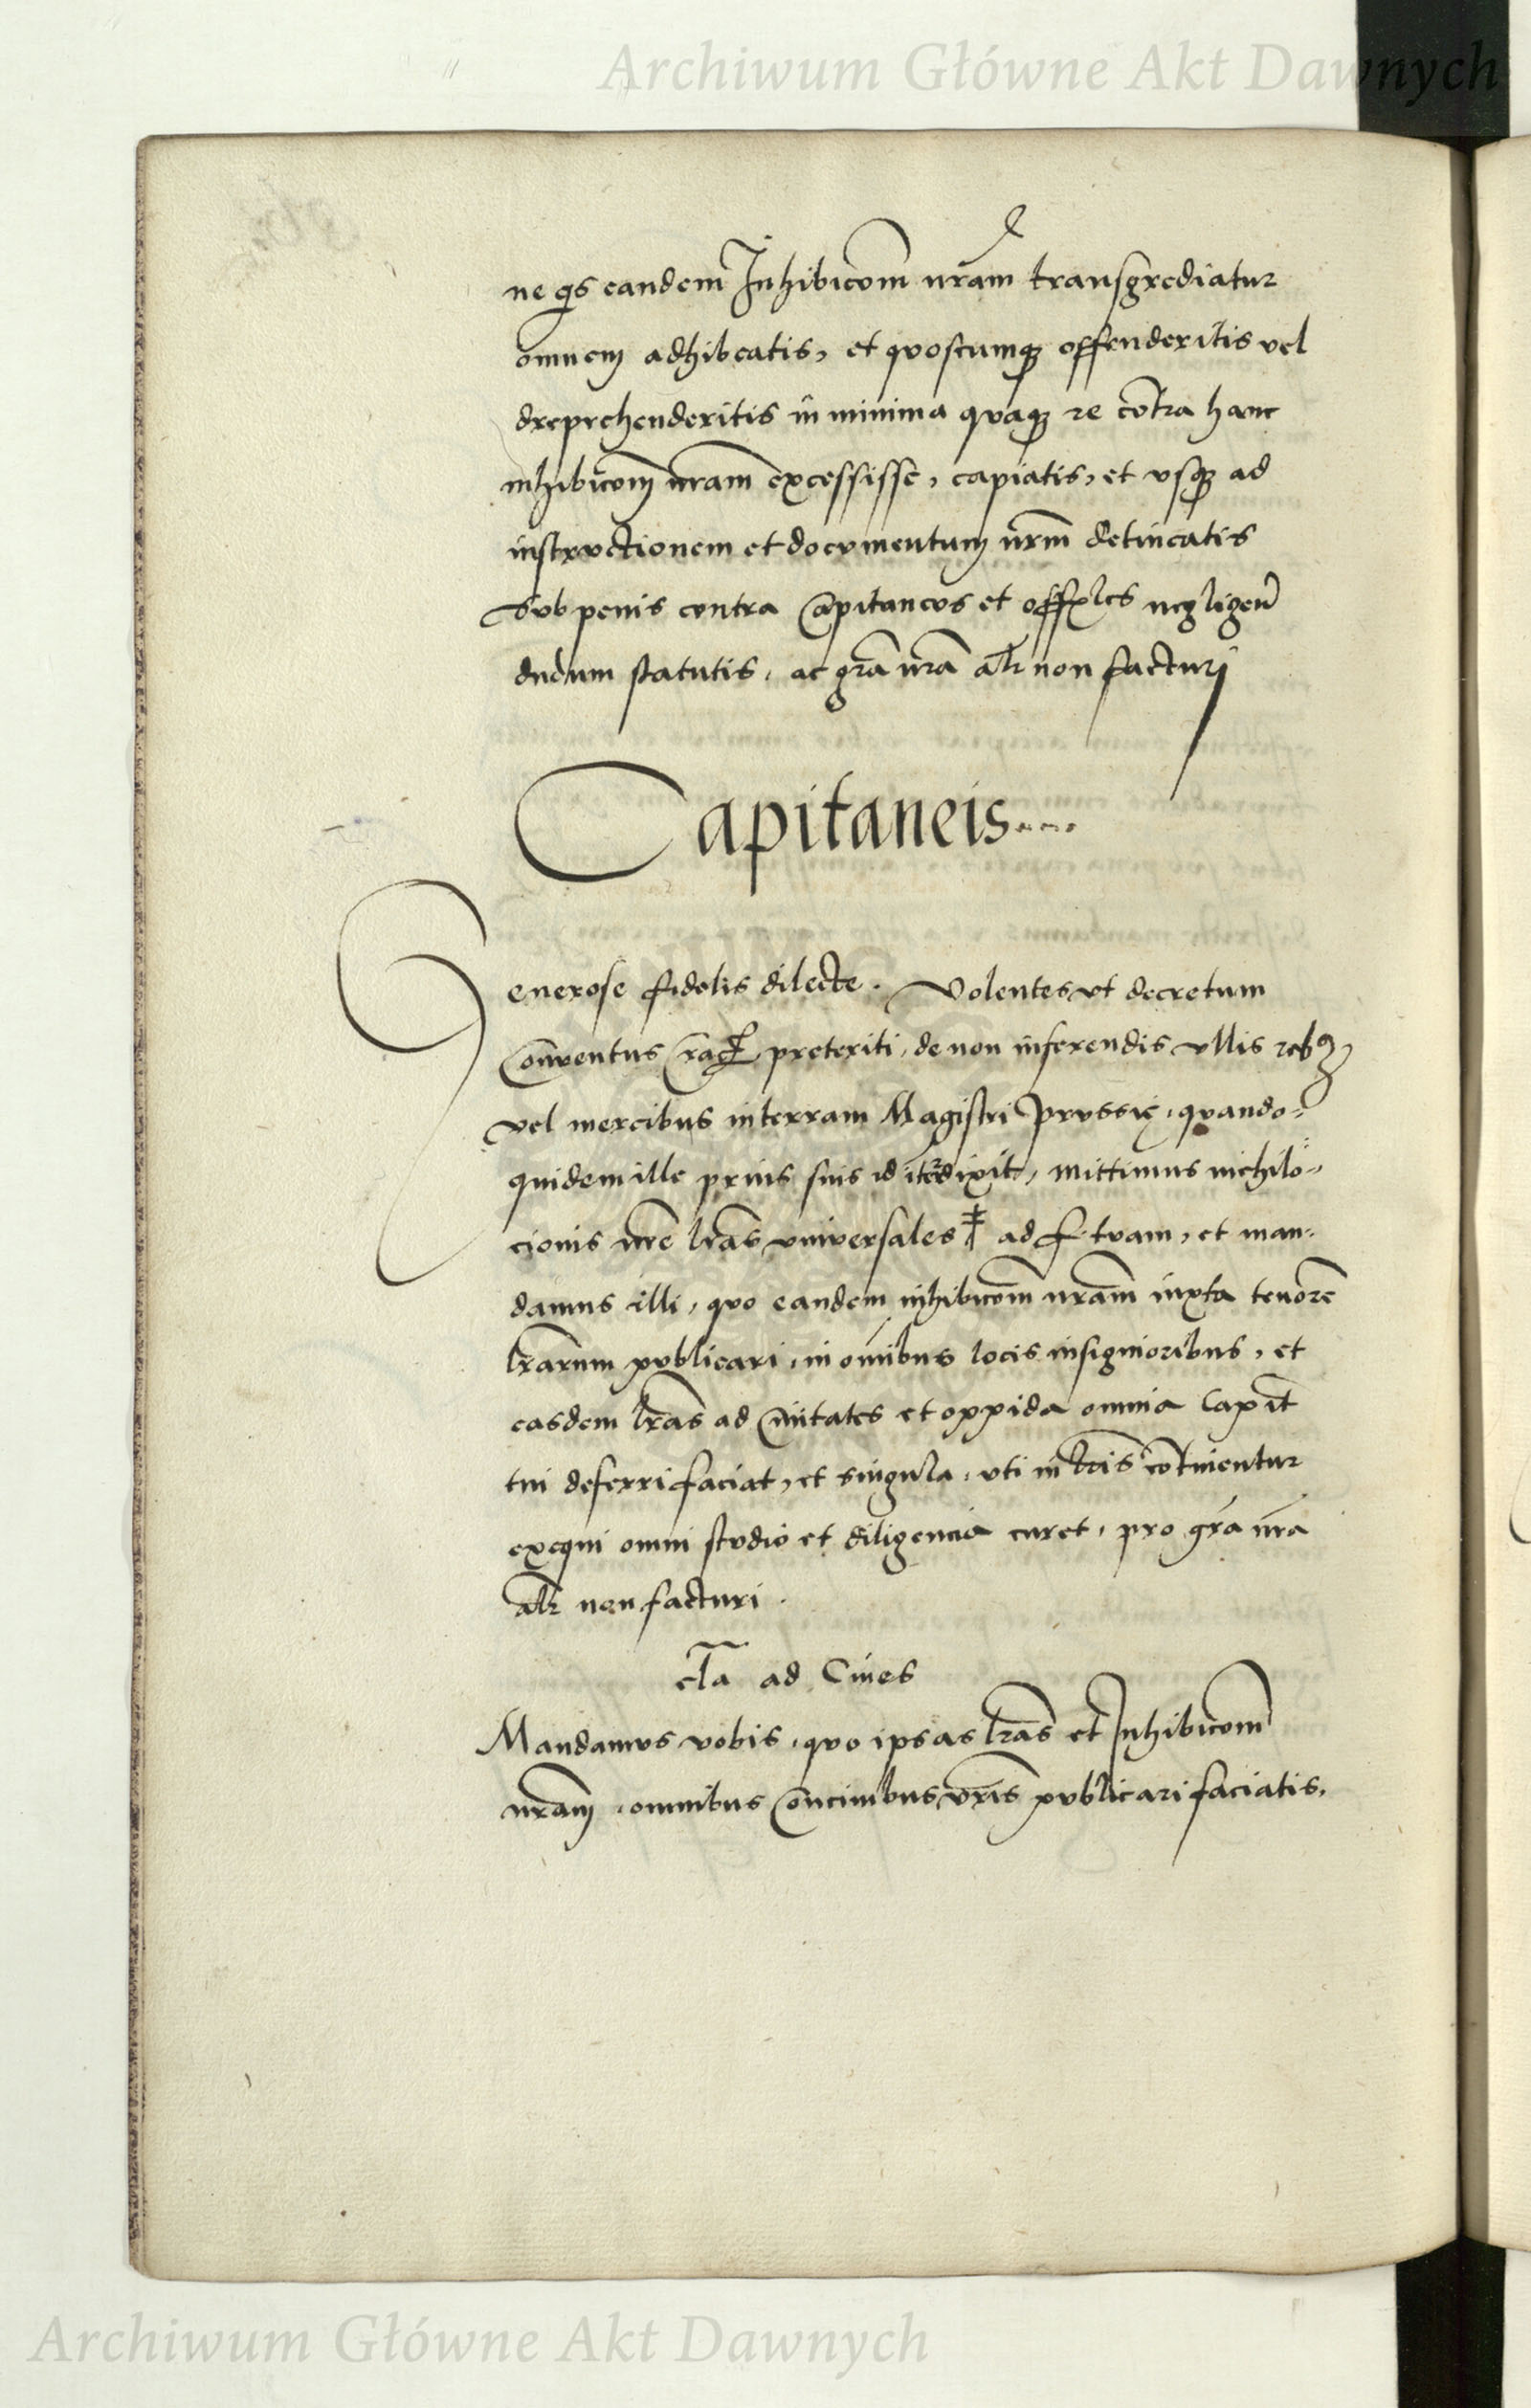 Archiwum Główne Akt Dawnych
ne qs eandem Inhibicom nram transgrediatur
omnem adhibeatis, et quoscumq offenderitis vel
dreprehenderitis in minima quaq re contra hanc
inhibicom nram excessisse, capiatis, et vsq ad
instructionem et documentum nrm detineatis
Sub penis contra Capitaneos et offles negligen
dudum statutis, ac gra nra alr non facturi
Capitaneis....
Generose fidelis dilecte. Volentes vt decretum
Conventus preteriti, de non inferendis vllis rebus
vel mercibus in terram Magistri Prussię, quando-
quidem ille prius suis id iterdixit, mittimus nichilo-
cionis nre lras vniversales ad f. tuam, et man-
damus illi, quo eandem inhibicom nram iuxta tenore
lrarum publicari, in omibus locis insignioribus, et
easdem lras ad Civitates et oppida omnia Capit
tui deferri faciat, et singula, vti in lris continentur
exequi omni studio et diligencia curet, pro gra nra
alr non facturi.
cla ad Cives
Mandamus vobis, quo ipsas lras et Inhibicom
nram, omnibus Concivibus vris publicari faciatis,
Archiwum Główne Akt Dawnych